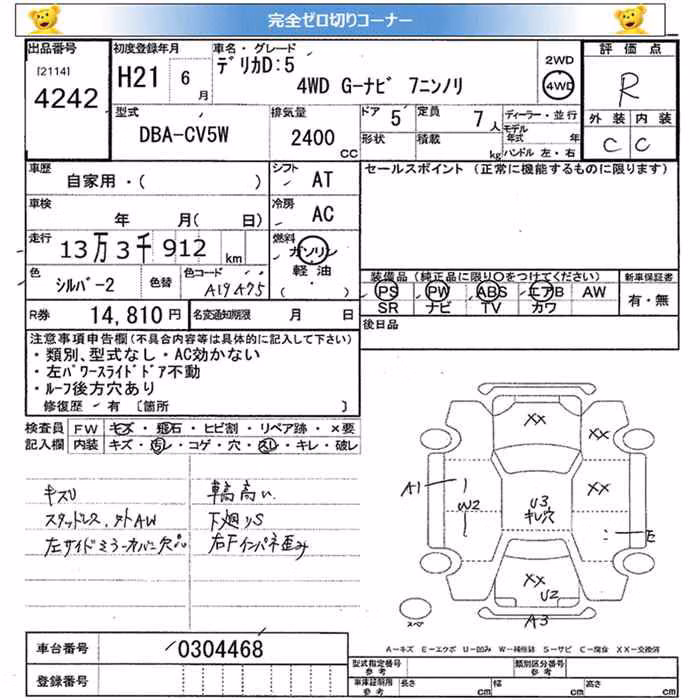 完全ゼロ切りコーナー
出品番号
[2114]
4242
初度登録年月
H21 6 月
車名・グレード
デリカD:5
4WD G-ナビ 7ニンノリ
2WD
4WD
評価点
R
外装 内装
C C
型式
DBA-CV5W
排気量
2400 CC
ドア 5
形状
定員 7 人
積載 kg
ディーラー・並行
モデル年式 年
ハンドル 左・右
車歴
自家用・( )
シフト AT
車検
年 月( 日)
冷房 AC
走行
13万3千912 km
燃料
ガソリン
軽油
( )
色
シルバー2
色替
色コード
A19A75
R券 14,810 円
名変通知期限 月 日
セールスポイント (正常に機能するものに限ります)
装備品 (純正品に限り○をつけてください)
PS PW ABS エアB AW
SR ナビ TV カワ
新車保証書
有・無
後日品
注意事項申告欄(不具合内容等は具体的に記入して下さい)
・類別、型式なし・AC効かない
・左パワースライドドア不動
・ルーフ後方穴あり
修復歴 有 [箇所 ]
検査員記入欄
FW キズ・飛石・ヒビ割・リペア跡・×要
内装 キズ・汚レ・コゲ・穴・スレ・キレ・破レ
キズU
スタッドレス、外AW
左サイドミラーカバー欠品
車高高い
下廻りS
右Fインパネ歪み
XX XX
A1 W2
U3
キレ穴
XX
E
XX
U2
A3
スペ
A-キズ E-エクボ U-凹み W-補修跡 S-サビ C-腐食 XX-交換済
車台番号 0304468
登録番号
型式指定番号
参考
類別区分番号
参考
車庫証明用
参考
長さ cm 幅 cm 高さ cm